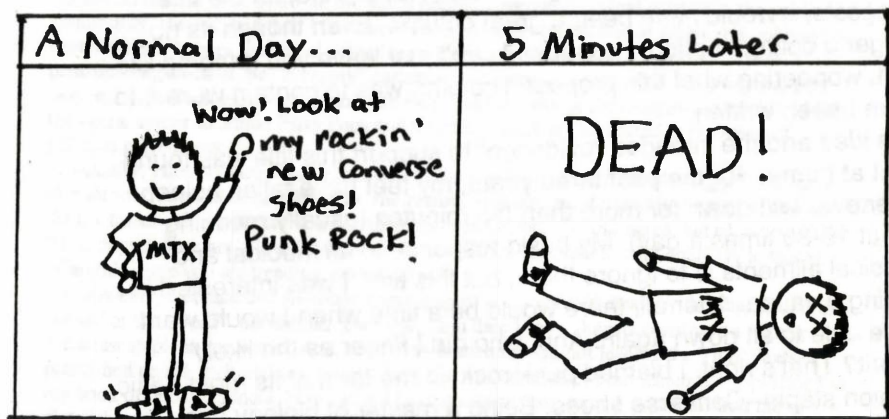 A Normal Day...
Wow! Look at
my rockin'
new Converse
shoes!
Punk Rock!
MTX
5 Minutes Later
DEAD!